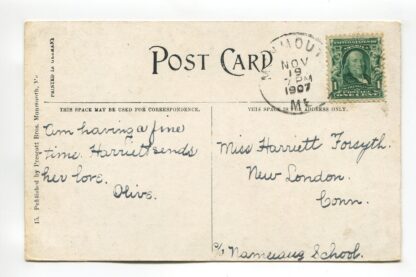 POST CARD
MONMOUTH
NOV
19
7 PM
1907
ME.
THIS SPACE MAY BE USED FOR CORRESPONDENCE.
THIS SPACE IS FOR ADDRESS ONLY.
PRINTED IN GERMANY
15. Published by Prescott Bros. Monmouth, Me.
Am having a fine
time. Harriet sends
her love.
Olive.
Miss Harriett Forsyth.
New London.
Conn.
c/o Nameaug School.